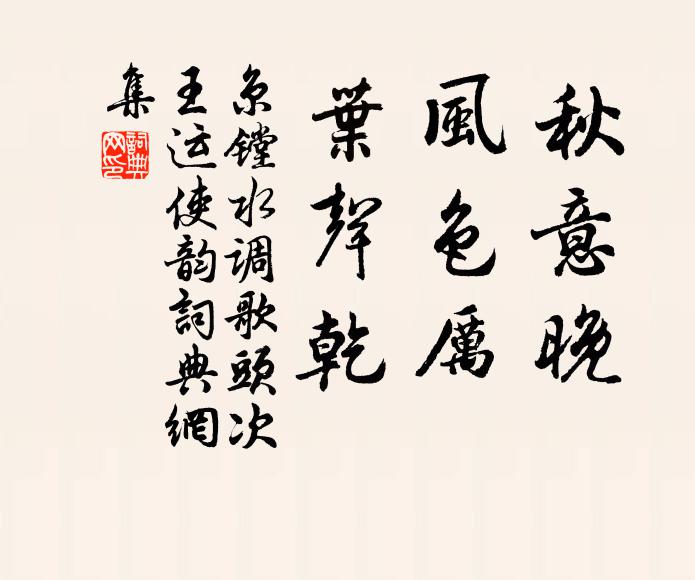 秋意晚
風色厲
葉聲乾
京鏜水调歌頭次
王运使韵詞典網
集
詞典網印